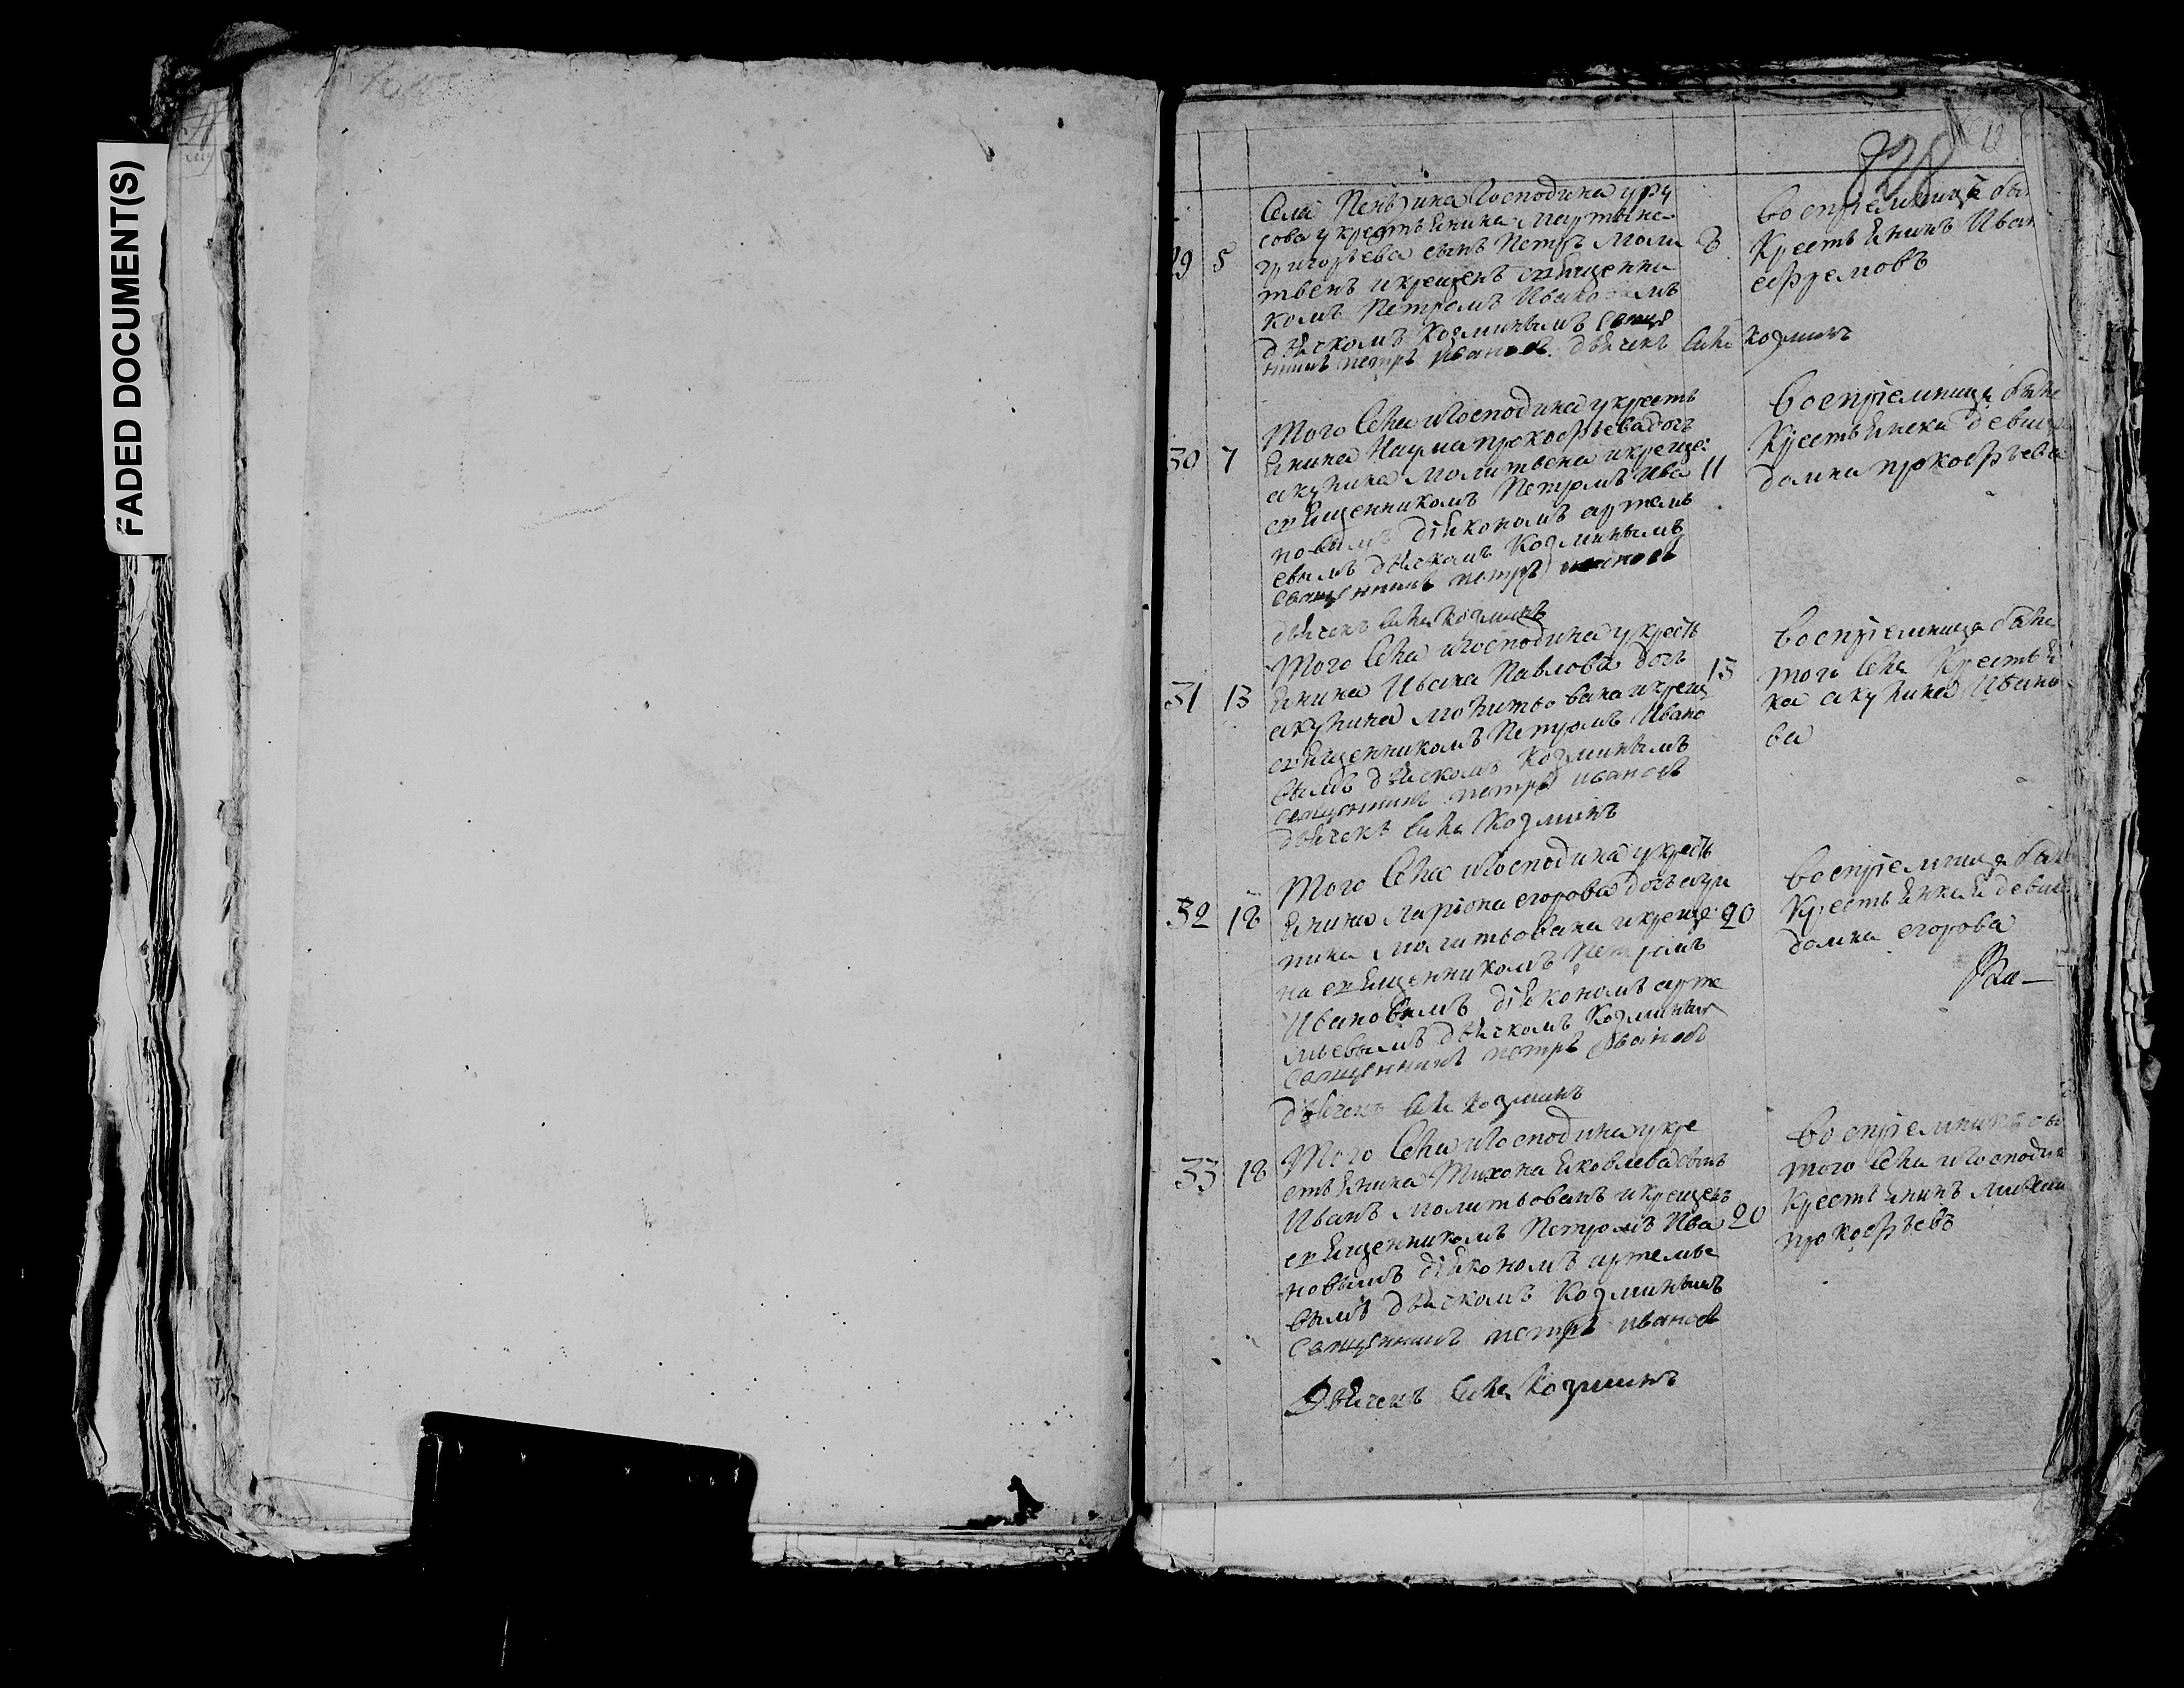 FADED DOCUMENT(S)
12
828
29 5
Села господина уру
сова у крестьянина мартына
григорьева сынъ Петръ моли
твенъ и крещенъ священни
комъ Петромъ Ивановымъ
дьячкомъ Козминымъ
Петръ Ивановъ дьячекъ Козминъ
Крестьянинъ Иван
ефремовъ
30 7 11
Того села и господина у кресть
янина Наума прокофьева дочь
акулина молитвена и креще
священникомъ Петромъ Ива
новымъ діякономъ артемь
евымъ дьячкомъ Козминымъ
священникъ петръ ивановъ
дьячекъ Козминъ
воспріемница была
Крестьянска девица
домна прокофьева
31 13 13
Того села и господина у кресть
янина Ивана Павлова дочь
акулина молитвована и крещ
священникомъ Петромъ Ивано
вымъ дьячкомъ Козминымъ
священникъ петръ ивановъ
дьячекъ Козминъ
воспріемница была
того села Крестьян
ка акулина Ивано
ва
32 18 20
Того села и господина у кресть
янина Ларіона егорова дочь агри
пина молитвована и креще
на священникомъ Петромъ
Ивановымъ діякономъ арте
мьевымъ дьячкомъ Козминым
священникъ петръ Ивановъ
дьячекъ Козминъ
воспріемница был
девиц
домна егорова
33 18 20
Того села и господина у кре
стьянина Тихона яковлева сынъ
Иванъ молитвованъ и крещенъ
священникомъ Петромъ Ива
новымъ діякономъ артемье
вымъ дьячкомъ Козминымъ
священникъ петръ ивановъ
Дьячекъ Козминъ
воспріемникъ бы
того села и господин
Крестьянинъ
прокофьевъ